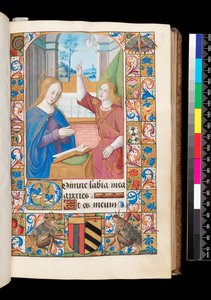 Domine labia mea
aperies.
Et os meum